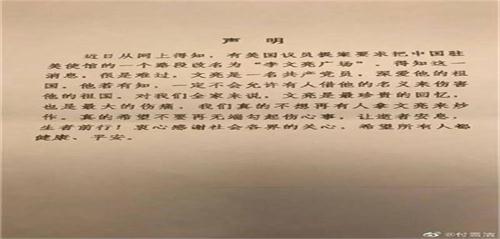 声 明
近日从网上得知，有美国议员提案要求把中国驻
美使馆的一个路段改名为“李文亮广场”，得知这一
消息，很是难过，文亮是一名共产党员，深爱他的祖
国，他若有知，一定不会允许有人借他的名义来伤害
他的祖国。对我们全家来说，文亮是最珍贵的回忆，
也是最大的伤痛，我们真的不想再有人拿文亮来炒
作。真的希望不要再无端勾起伤心事，让逝者安息，
生者前行！衷心感谢社会各界的关心，希望所有人都
健康、平安。
@付雪洁